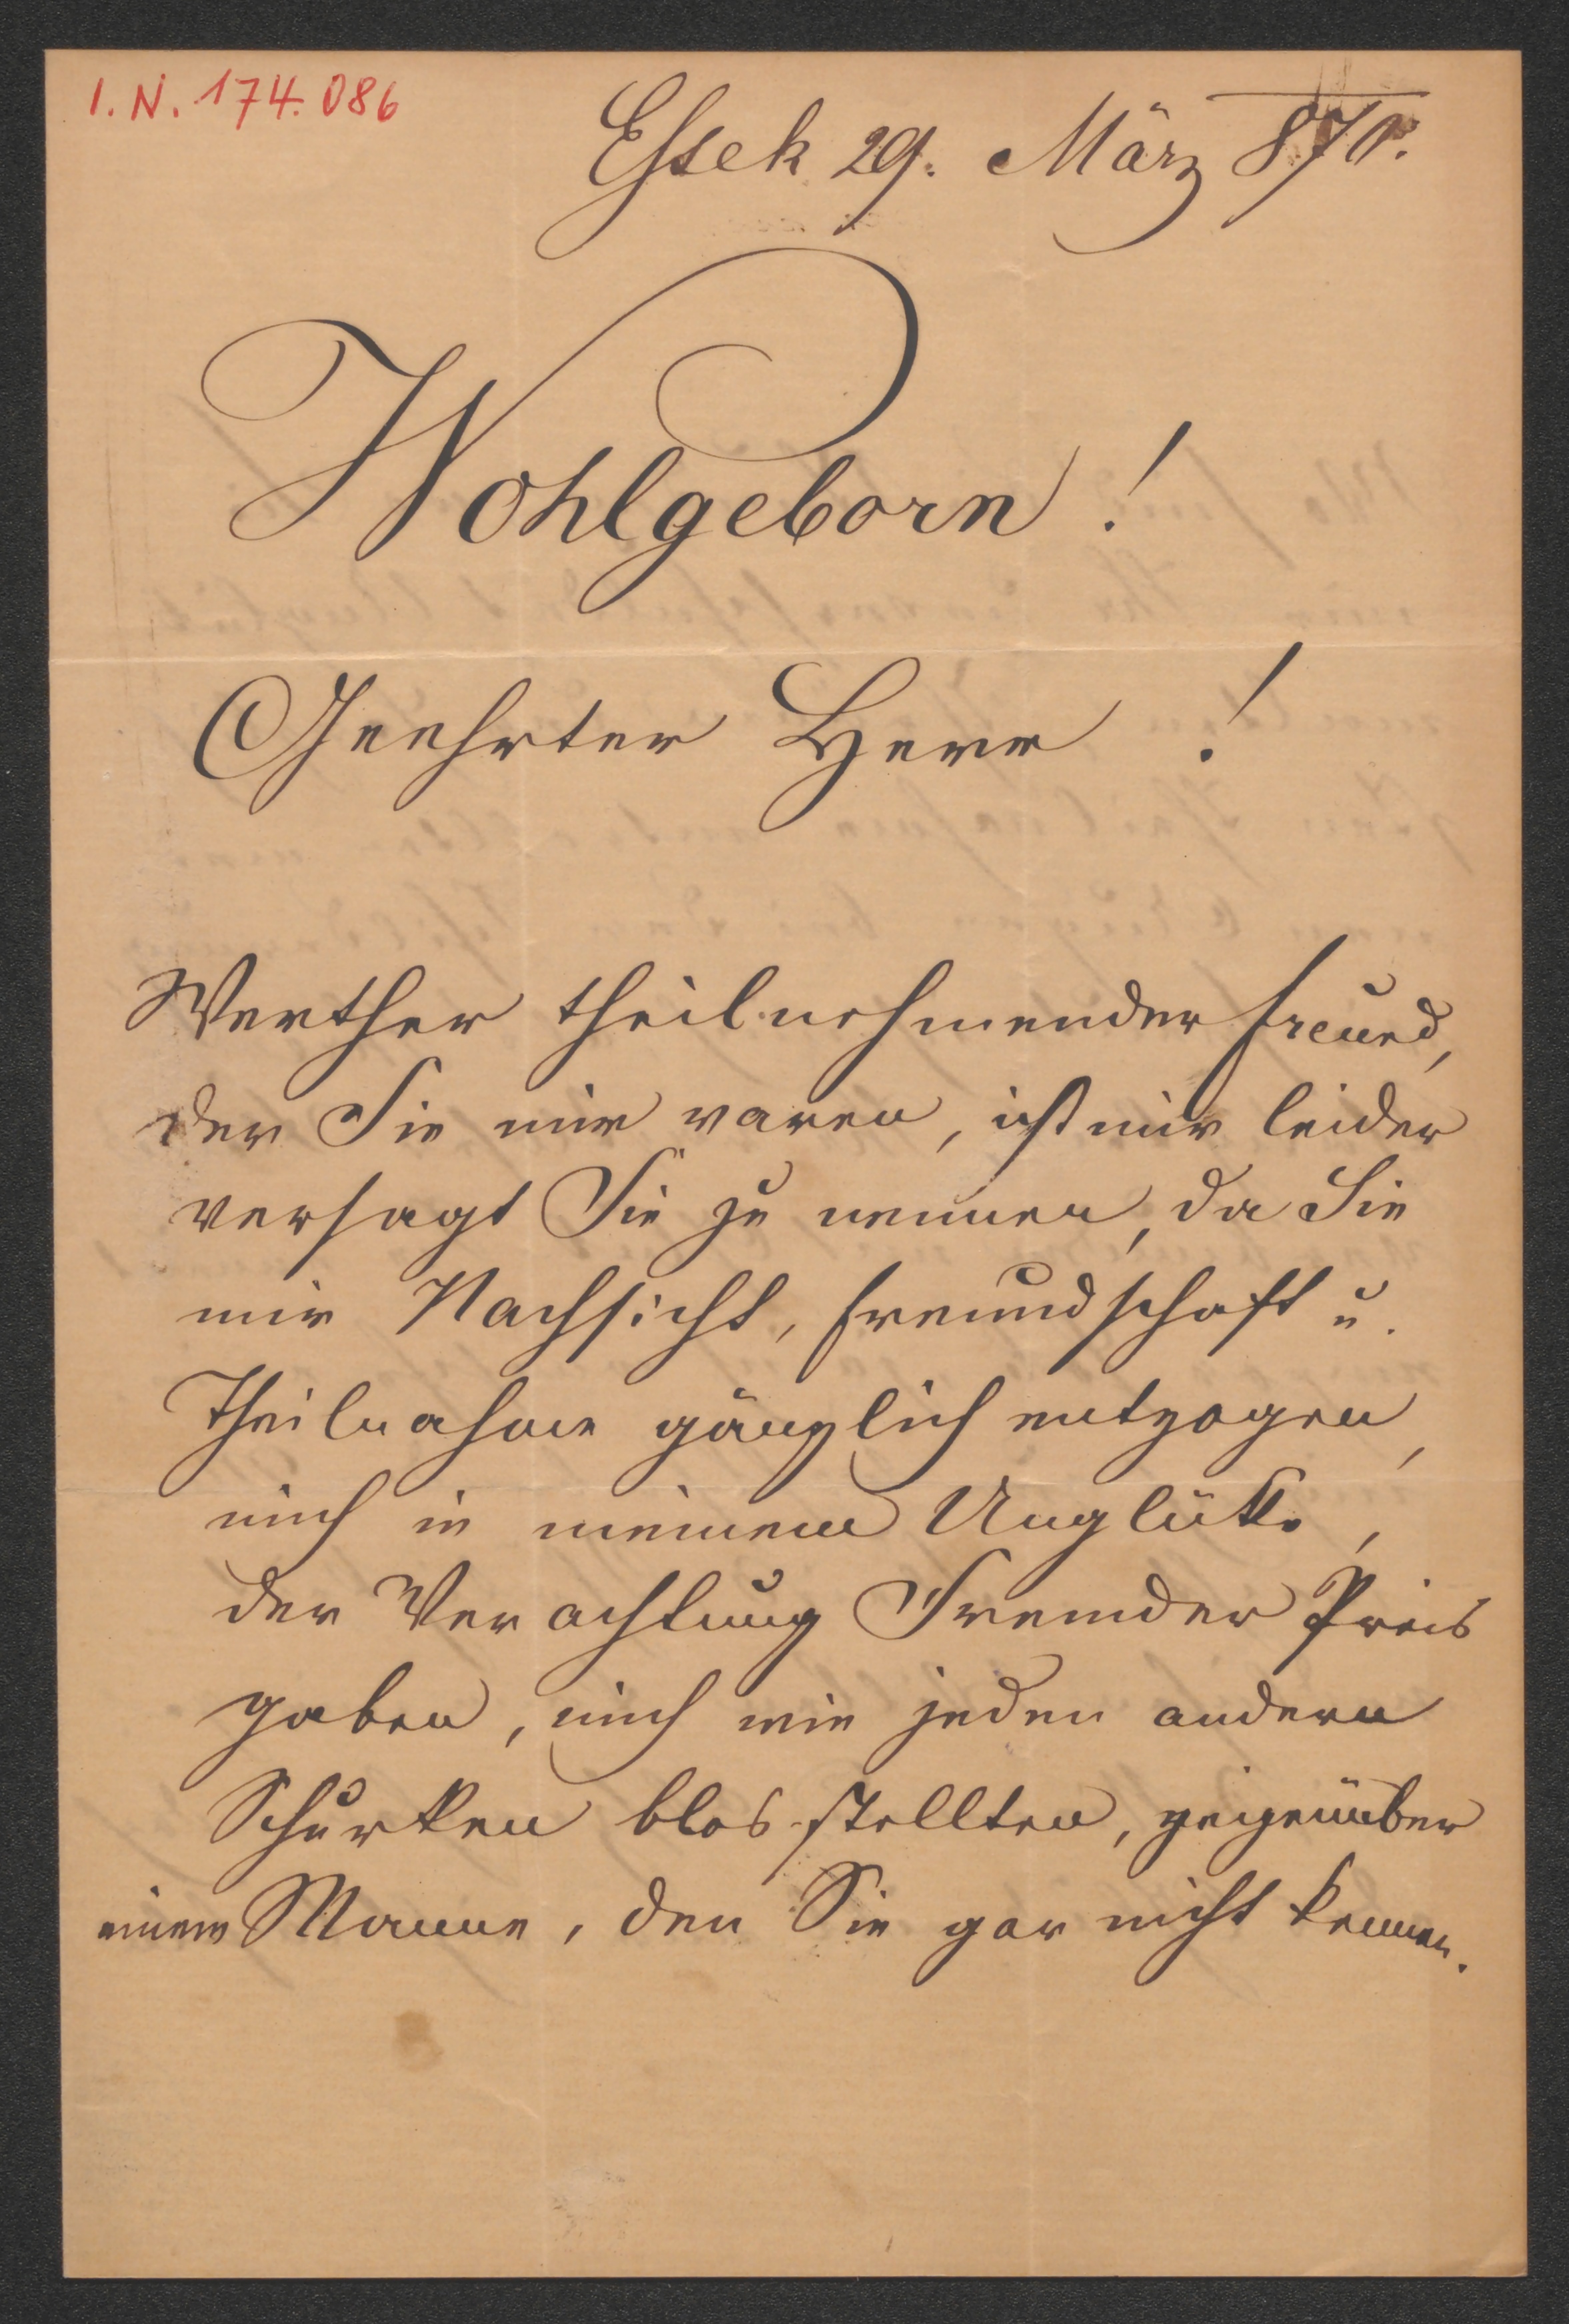 I. N. 174.086
Essek 29. März 870.
Wohlgeborn!
Geehrter Herr!
Werther theilnehmender Freund,
der Sie mir waren, ist mir leider
versagt Sie zu nennen, da Sie
mir Nachsicht, Freundschaft u.
Theilnahme gänzlich entzogen,
mich in meinem Unglüke,
der Verachtung Fremder Preis
gaben, mich wie jeden andern
Schurken blos stellten, gegenüber
einem Manne, den Sie gar nicht kennen.